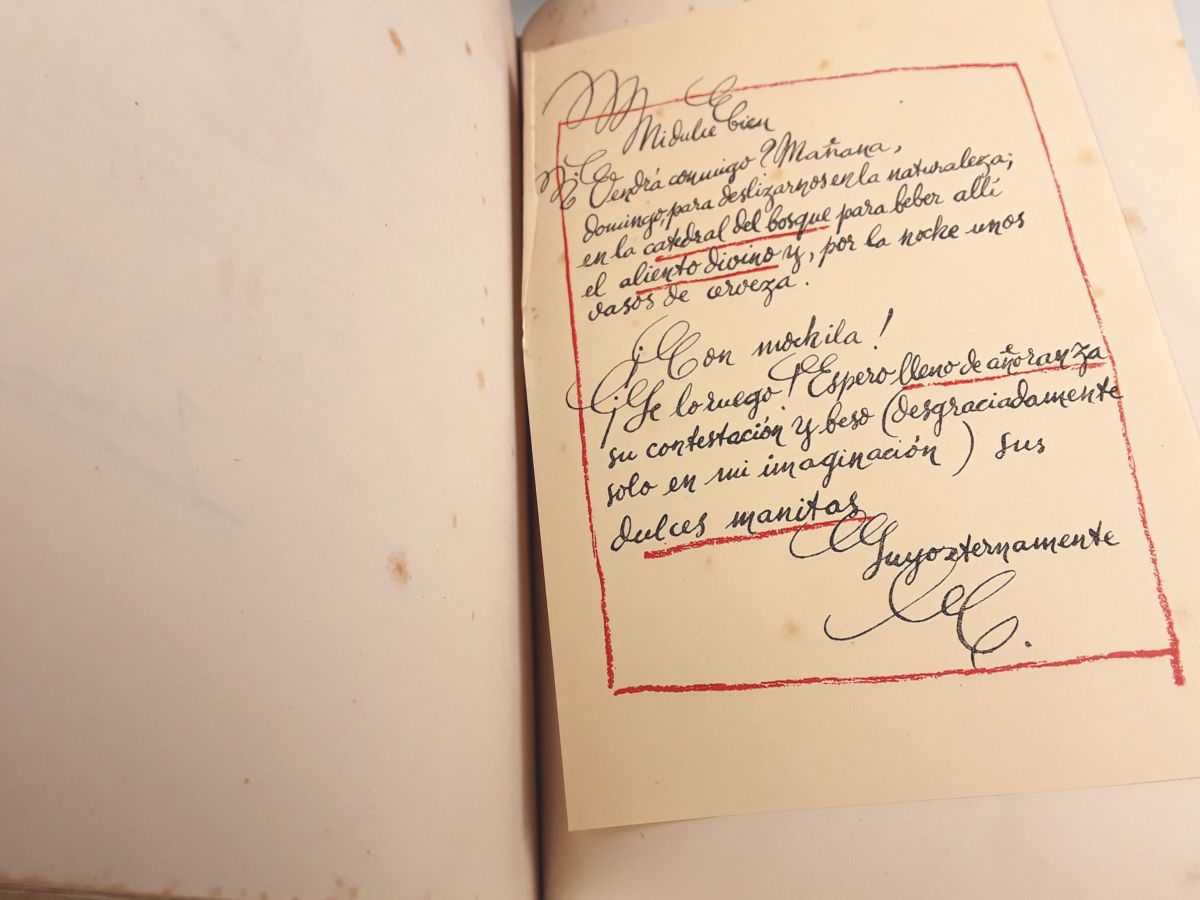 Mi dulce bien
¿Vendrá conmigo? Mañana,
domingo, para deslizarnos en la naturaleza;
en la catedral del bosque para beber allí
el aliento divino y, por la noche unos
vasos de cerveza.
¡Con mochila!
¡Se lo ruego! Espero lleno de añoranza
su contestación y beso (desgraciadamente
solo en mi imaginación) sus
dulces manitas
Suyo eternamente